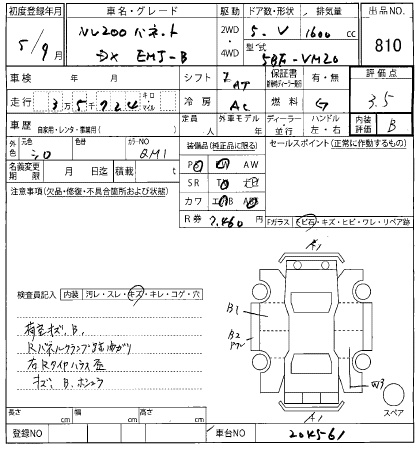 初度登録年月 車名・グレード 駆動 ドア数・形状 排気量 出品NO
5/9月 NV200バネット 2WD・4WD 5・V 1600cc 810
DX EMJ-B 型式 5BF-VM20
車検 年 月 シフト AT 保証書 有・無 評価点
走行 3万5千724 キロ マイル 冷房 AC 燃料 G 3.5
車歴 自家用・レンタ・事業用( ) 定員 人 外車モデル 年 ディーラー・並行 ハンドル 左・右 内装評価 B
外色 元色 シロ 色替 カラーNO QM1 装備品(純正品に限る) セールスポイント(正常に作動するもの)
名義変更期限 月 日迄 積載 t PS PW AW
注意事項(欠品・修復・不具合箇所および状態) SR
カワ
R券 7,460円 Fガラス トビ石・キズ・ヒビ・ワレ・リペア跡
A1
検査員記入 内装 汚レ・スレ・キズ・キレ・コゲ・穴 B1
荷室キズ、B. B2
W3
キズ、B. スペア
A1
長さ cm 幅 cm 高さ cm
登録NO 車台NO 204561